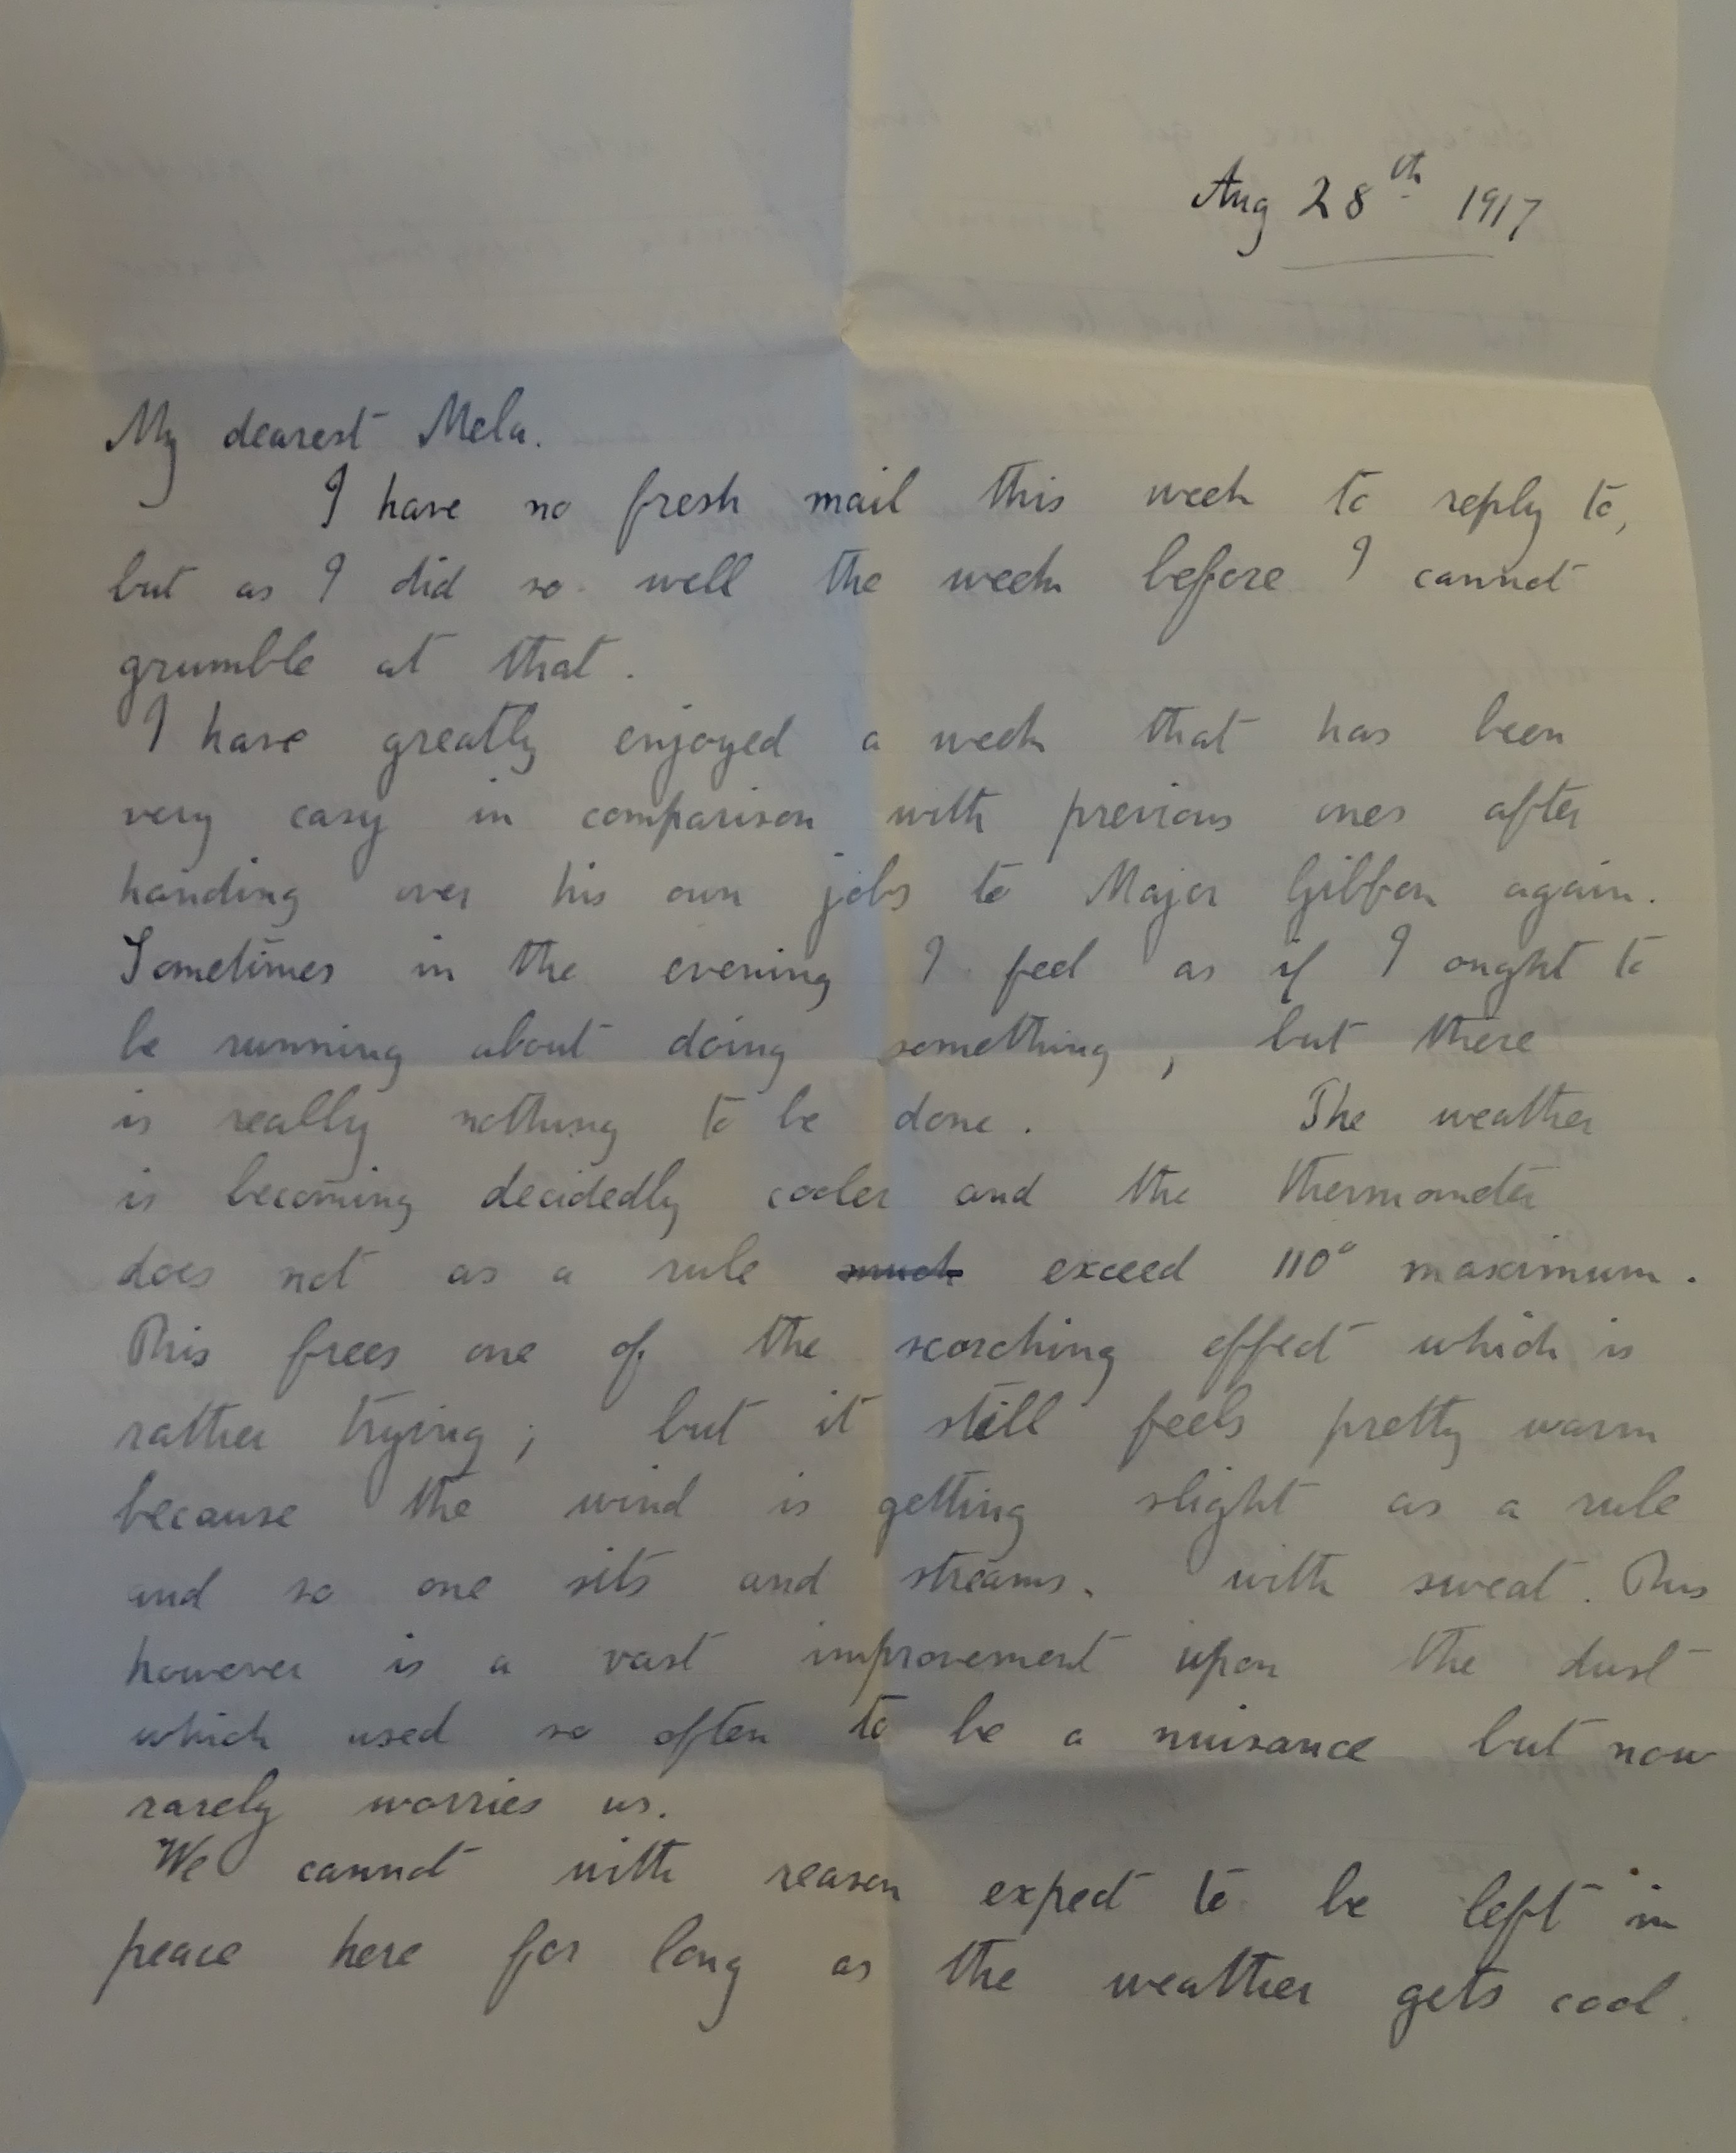 Aug 28th 1917
My dearest Mela.
I have no fresh mail this week to reply to,
but as I did so well the week before I cannot
grumble at that.
I have greatly enjoyed a week that has been
very easy in comparison with previous ones after
handing over his own jobs to Major Gibbon again.
Sometimes in the evening I feel as if I ought to
be running about doing something, but there
is really nothing to be done. The weather
is becoming decidedly cooler and the thermometer
does not as a rule much exceed 110° maximum.
This frees one of the scorching effect which is
rather trying; but it still feels pretty warm
because the wind is getting slight as a rule
and so one sits and streams. with sweat. This
however is a vast improvement upon the dust
which used so often to be a nuisance but now
rarely worries us.
We cannot with reason expect to be left in
peace here for long as the weather gets cool.